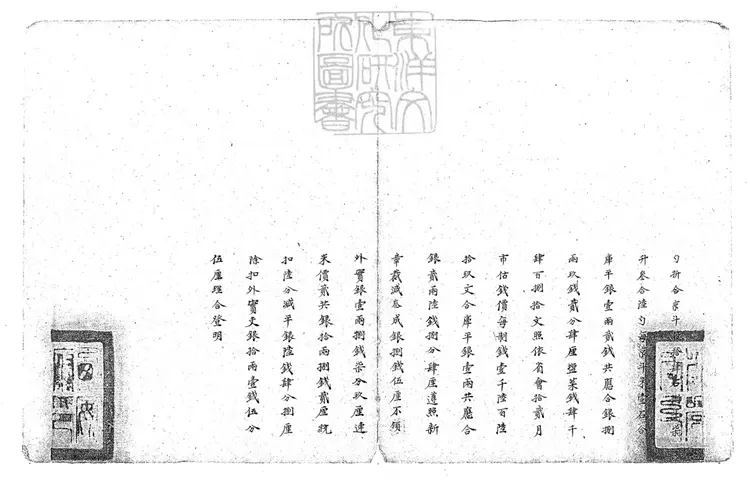 東洋文
化研究
所圖書
勺折合京斗
升叁合陸勺
庫平銀壹兩貳錢共應合銀捌
兩玖錢貳分肆厘鹽菜錢肆千
肆百捌拾文照依省會拾貳月
市估錢價每制錢壹千陸百陸
拾玖文合庫平銀壹兩共應合
銀貳兩陸錢捌分肆厘遵照新
章裁減叁成銀捌錢伍厘不領
外實銀壹兩捌錢柒分玖厘連
米價貳共銀拾兩捌錢貳厘統
扣陸分減平銀陸錢肆分捌厘
除扣外實支銀拾兩壹錢伍分
伍厘理合登明